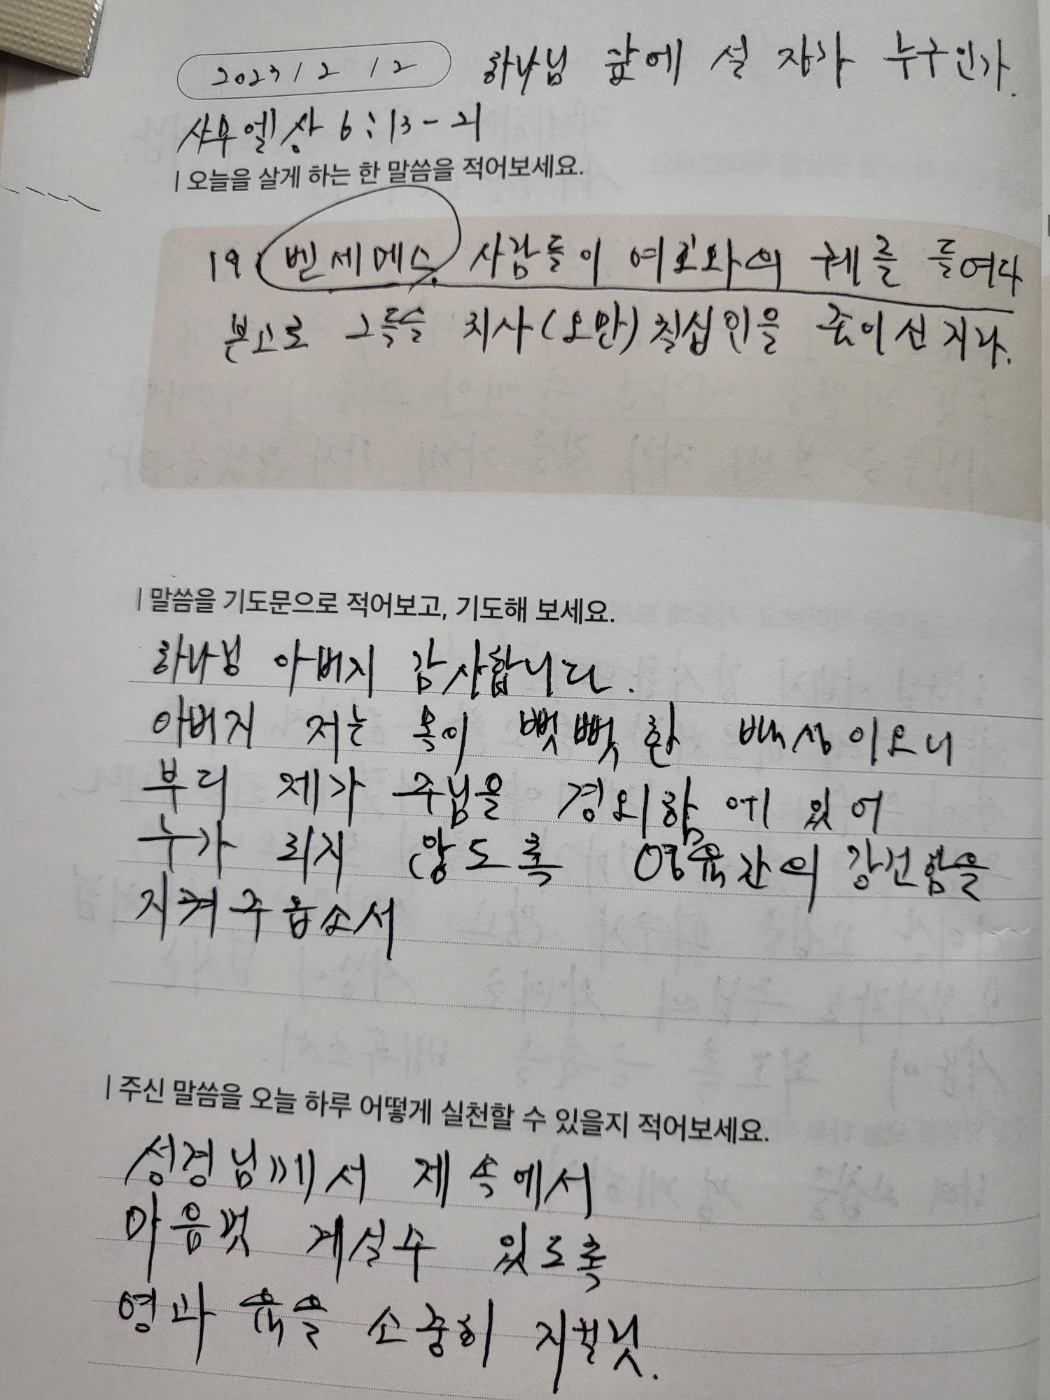 2023 / 2 / 2 하나님 앞에 설 자가 누구인가.
사무엘상 6:13-21
| 오늘을 살게 하는 한 말씀을 적어보세요.
19. 벧세메스 사람들이 여호와의 궤를 들여다
본고로 그들을 치사(오만)칠십인을 죽이신지라.
| 말씀을 기도문으로 적어보고, 기도해 보세요.
하나님 아버지 감사합니다.
아버지 저는 목이 뻣뻣한 백성이오니
부디 제가 주님을 경외함에 있어
누가 되지 않도록 영육간의 강건함을
지켜주옵소서
| 주신 말씀을 오늘 하루 어떻게 실천할 수 있을지 적어보세요.
성경님께서 제 속에서
마음껏 계실수 있도록
영과 육을 소중히 지킬것.